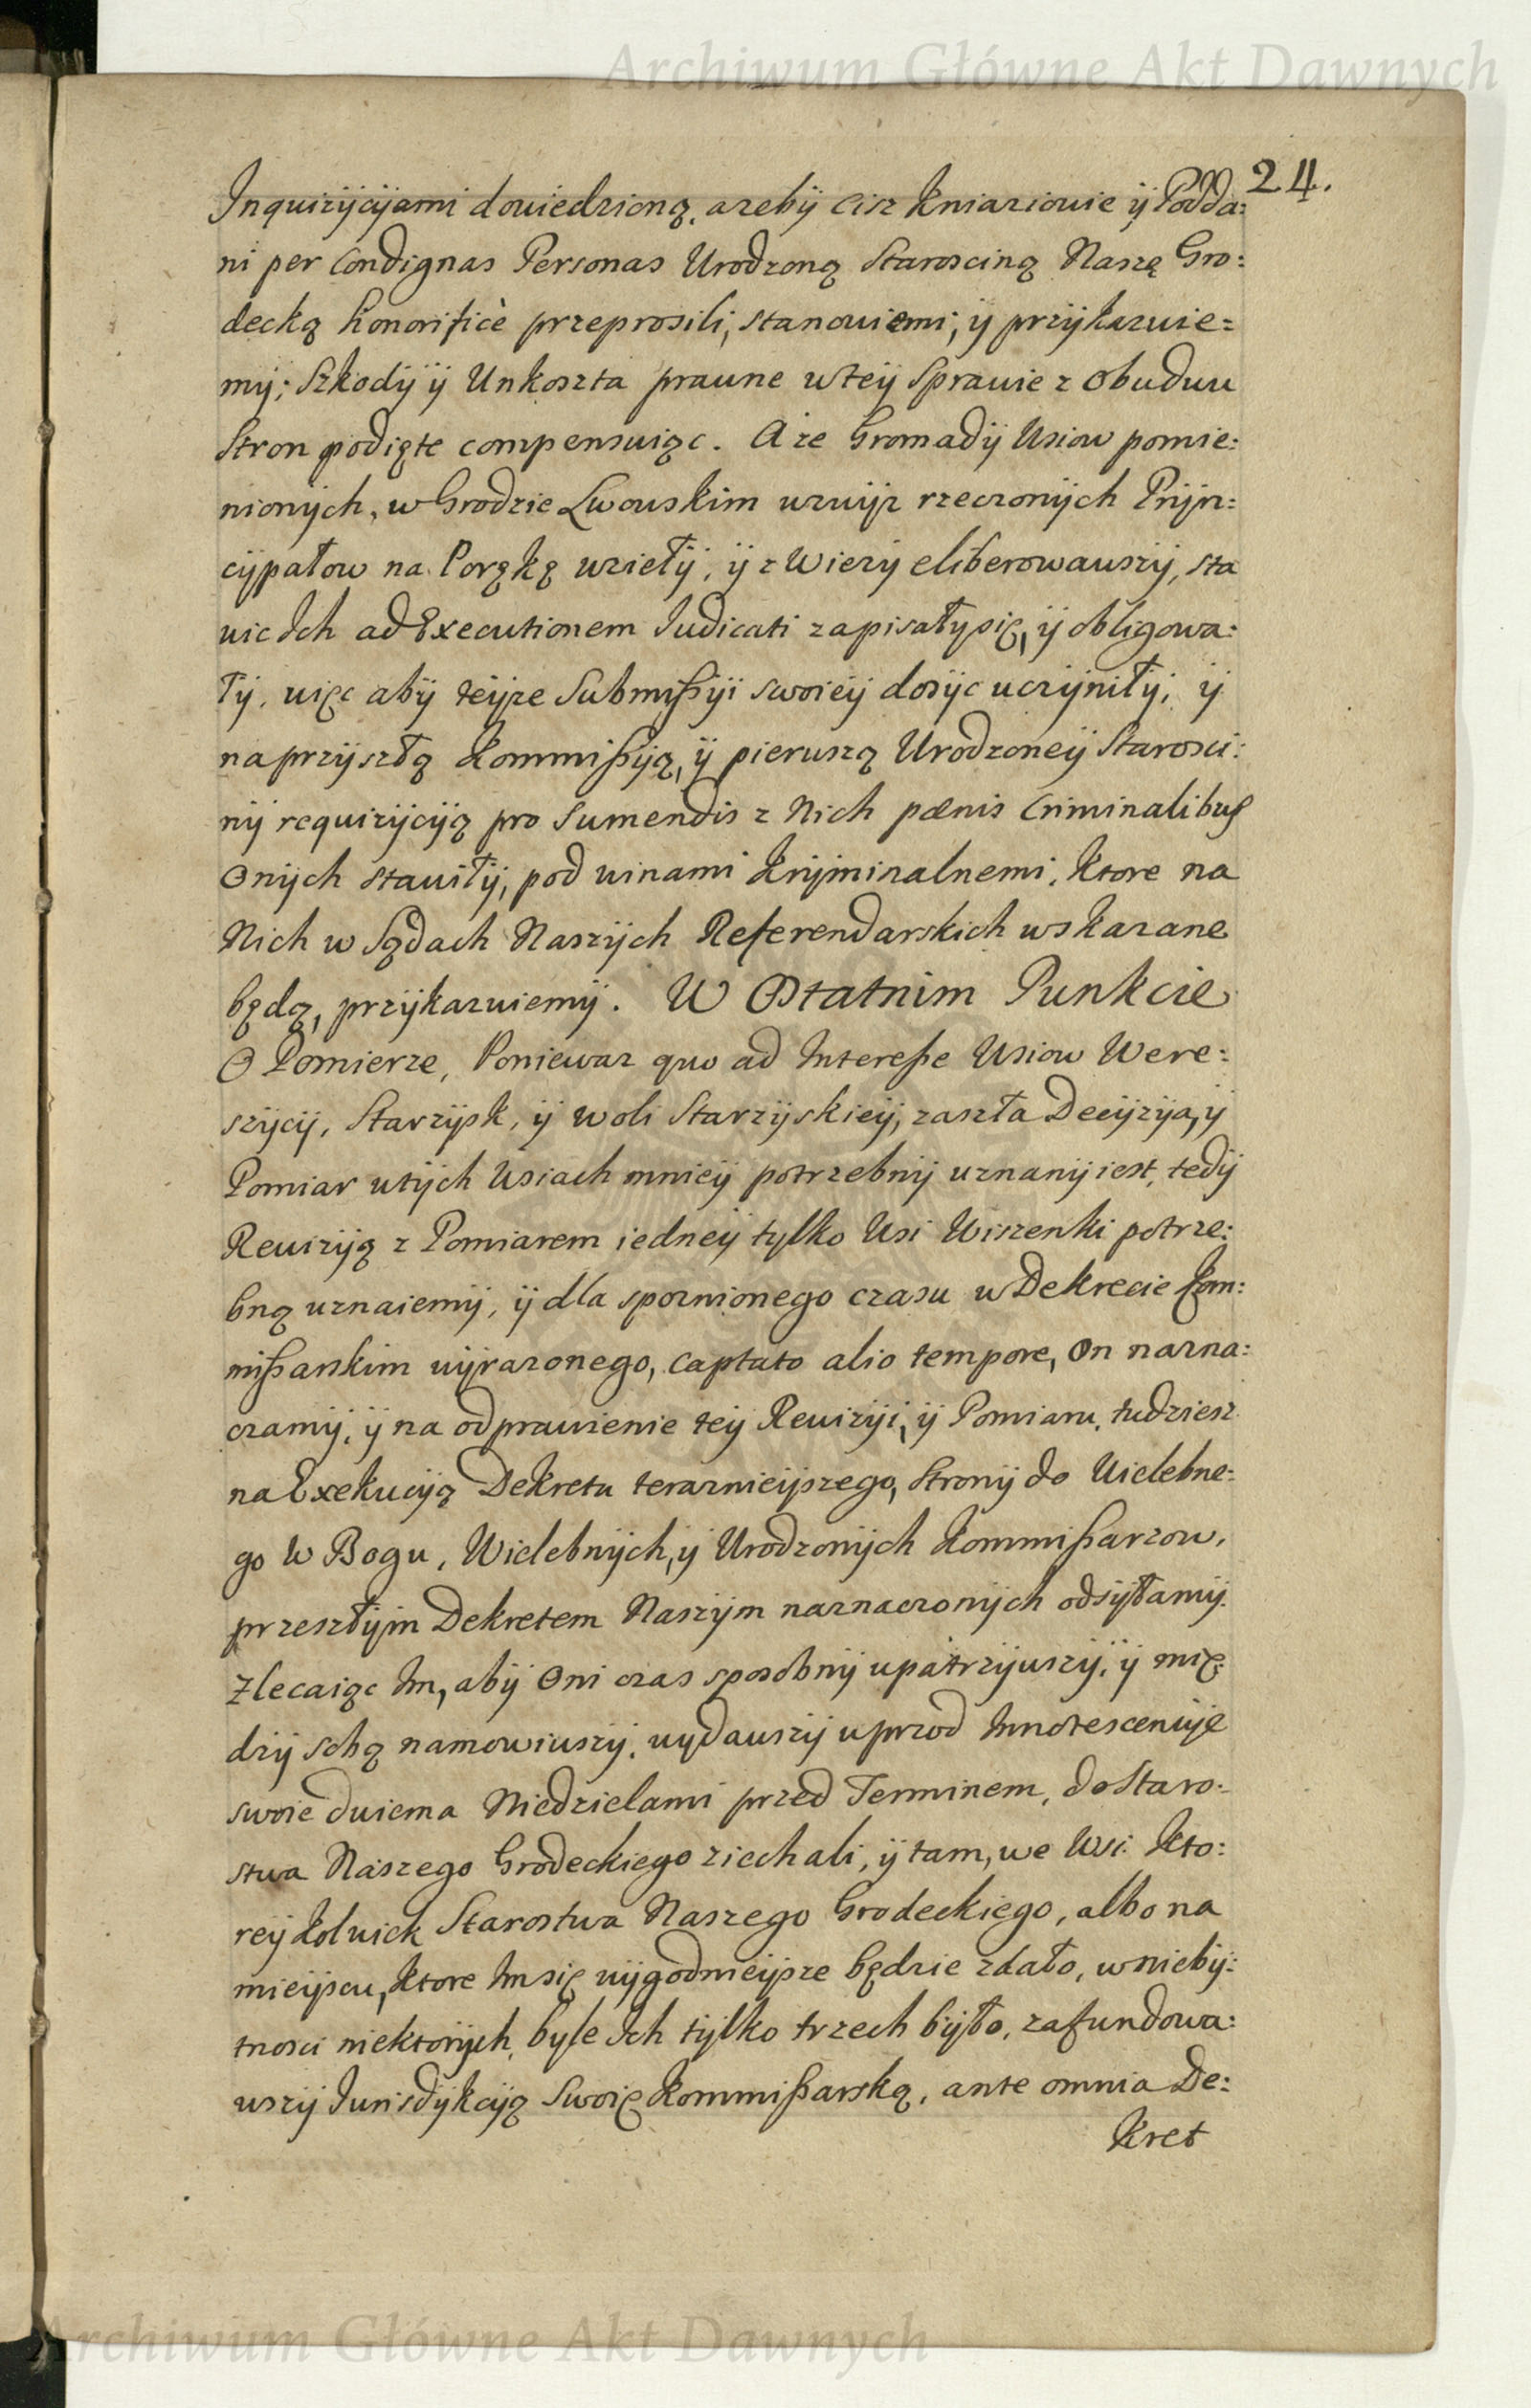 Archiwum Główne Akt Dawnych
24.
Inquizycyami dowiedzioną, azeby cisz Kniaziowie y Podda:
ni per Condignas Personas Urodzoną Staroscinę Naszę Gro:
decką honorificè przeprosili, stanowiemi, y przykazuie=
my; Szkody y Unkoszta prawne w tey Sprawie z obudwu
Stron podięte compensuiąc. A ze Gromady Wsiow pomie:
nionych, w Grodzie Lwowskim wzwyz rzeczonych Pryn:
cypałow na Porękę wzieły, y z Wiezy eliberowawszy, sta
wic Ich ad Executionem Iudicati zapisały się, y obligowa:
ły, więc aby teyze Submissyi swoiey dosyc uczyniły, y
na przyszłą Kommissyą, y pierwszą Urodzoney Starosci:
ny requizycyą pro Sumendis z Nich pœnis Criminalibus
Onych stawiły, pod winami Kryminalnemi, Ktore na
Nich w Sądach Naszych Referendarskich wskazane
będą, przykazuiemy. W Ostatnim Punkcie
O Pomierze, Poniewaz quo ad Interesse Wsiow Were:
szycy, Starzysk, y Woli Starzyskiey, zaszła Decyzya, y
Pomiar w tych Wsiach mniey potrzebny uznany iest, tedy
Rewizyą z Pomiarem iedney tylko Wsi Wiszenki potrze:
bną uznaiemy, y dla spoznionego czasu w Dekrecie Kom:
missarskim wyrazonego, captato alio tempore, On nazna:
czamy, y na odprawienie tey Rewizyi, y Pomiaru, tudziesz
na Exekucyą Dekretu teraznieyszego, Strony do Wielebne:
go w Bogu, Wielebnych, y Urodzonych Kommissarzow,
przeszłym Dekretem Naszym naznaczonych odsyłamy.
Zlecaiąc Im, aby Oni czas sposobny upatrzywszy, y mię:
dzy sobą namowiwszy, wydawszy wprzod Innotescencyę
swoie dwiema Niedzielami przed Terminem, do Staro:
stwa Naszego Grodeckiego ziechali, y tam, we Wsi Kto:
rey kolwiek Starostwa Naszego Grodeckiego, albo na
mieyscu, Ktore Im się wygodnieysze będzie zdało, w nieby:
tnosci niektorych, byle Ich tylko trzech było, zafundowa:
wszy Iurisdykcyą Swoię Kommissarską, ante omnia De:
kret
Archiwum Główne Akt Dawnych